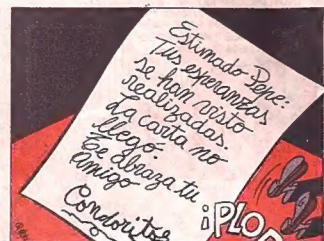 Estimado Pepe:
Tus esperanzas
se han visto
realizadas.
La carta no
llegó.
Te abraza tu
amigo
Condorito
¡PLOP